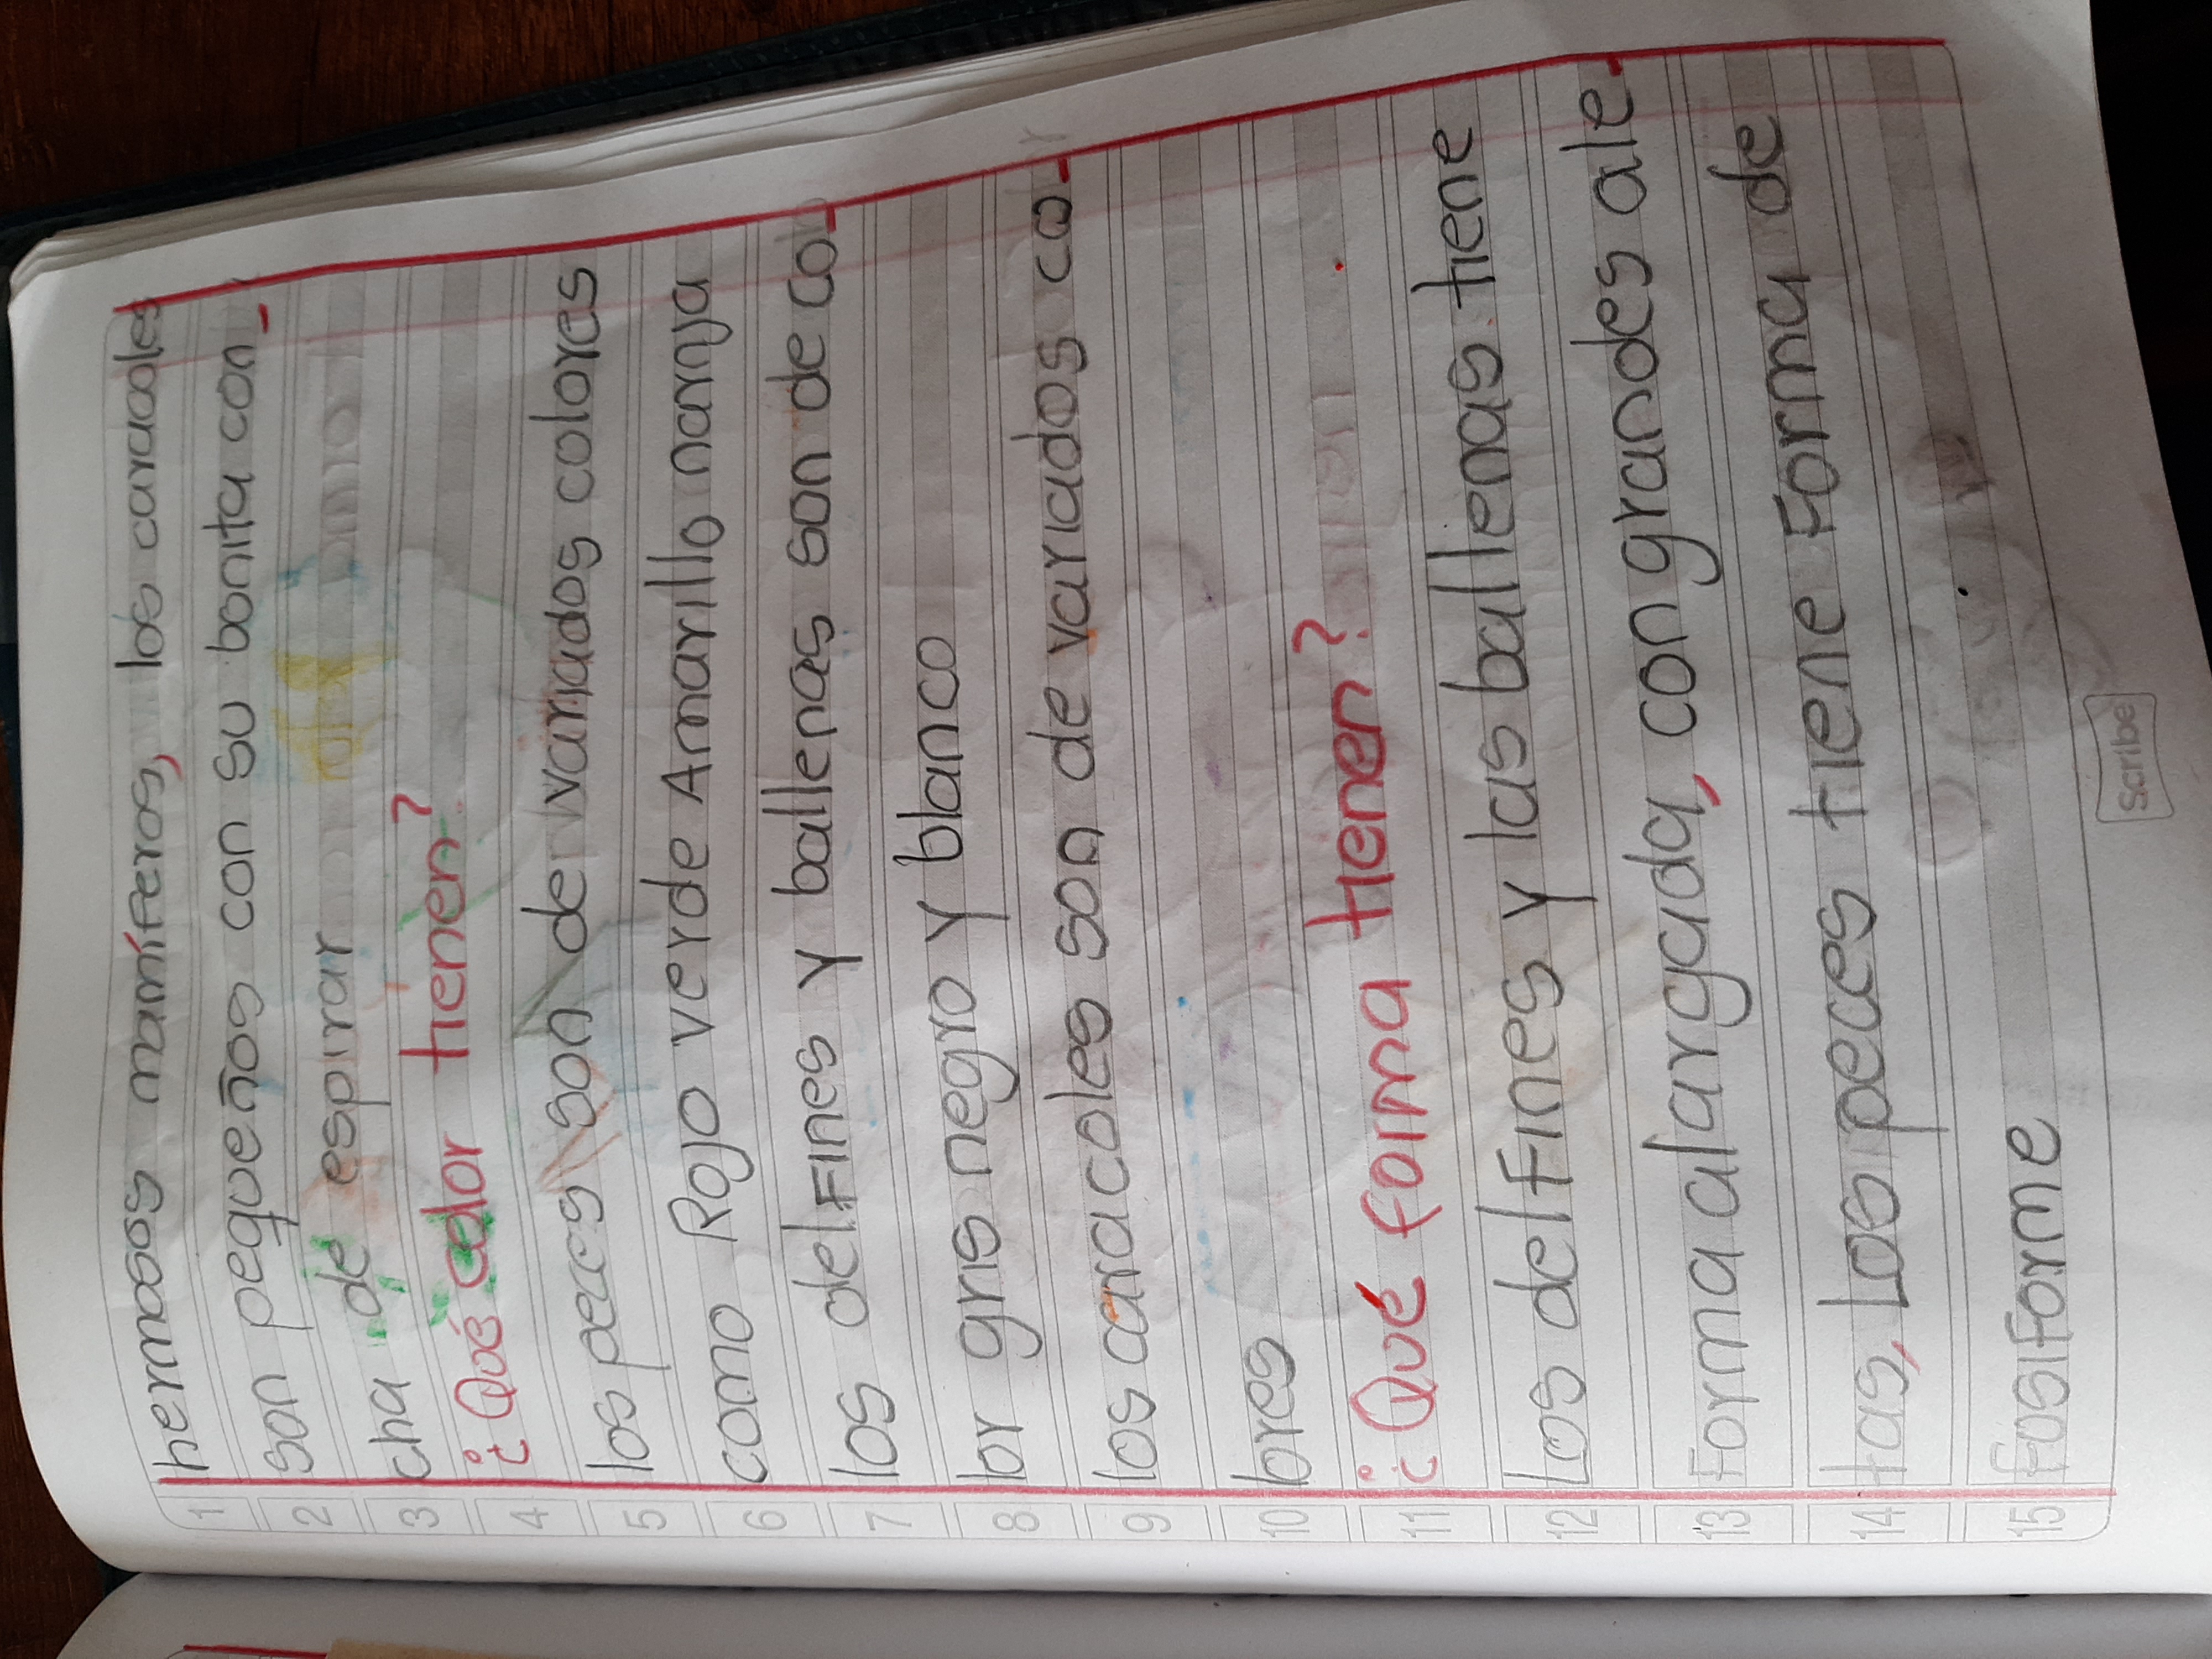 1 hermosos mamíferos, los caracoles
2 son pequeños con su bonita con_
3 cha de espirar
4 ¿Qué color tienen?
5 los peces son de variados colores
6 como Rojo verde Amarillo narnja
7 los delfines y ballenas son de co_
8 lor gris negro y blanco
9 los caracoles son de variados co_
10 bres
11 ¿Qué forma tienen?
12 Los delfines y las ballenas tiene
13 Forma alargada, con grandes ale_
14 tas, Los peces tiene Forma de
15 fusiforme
Scribe